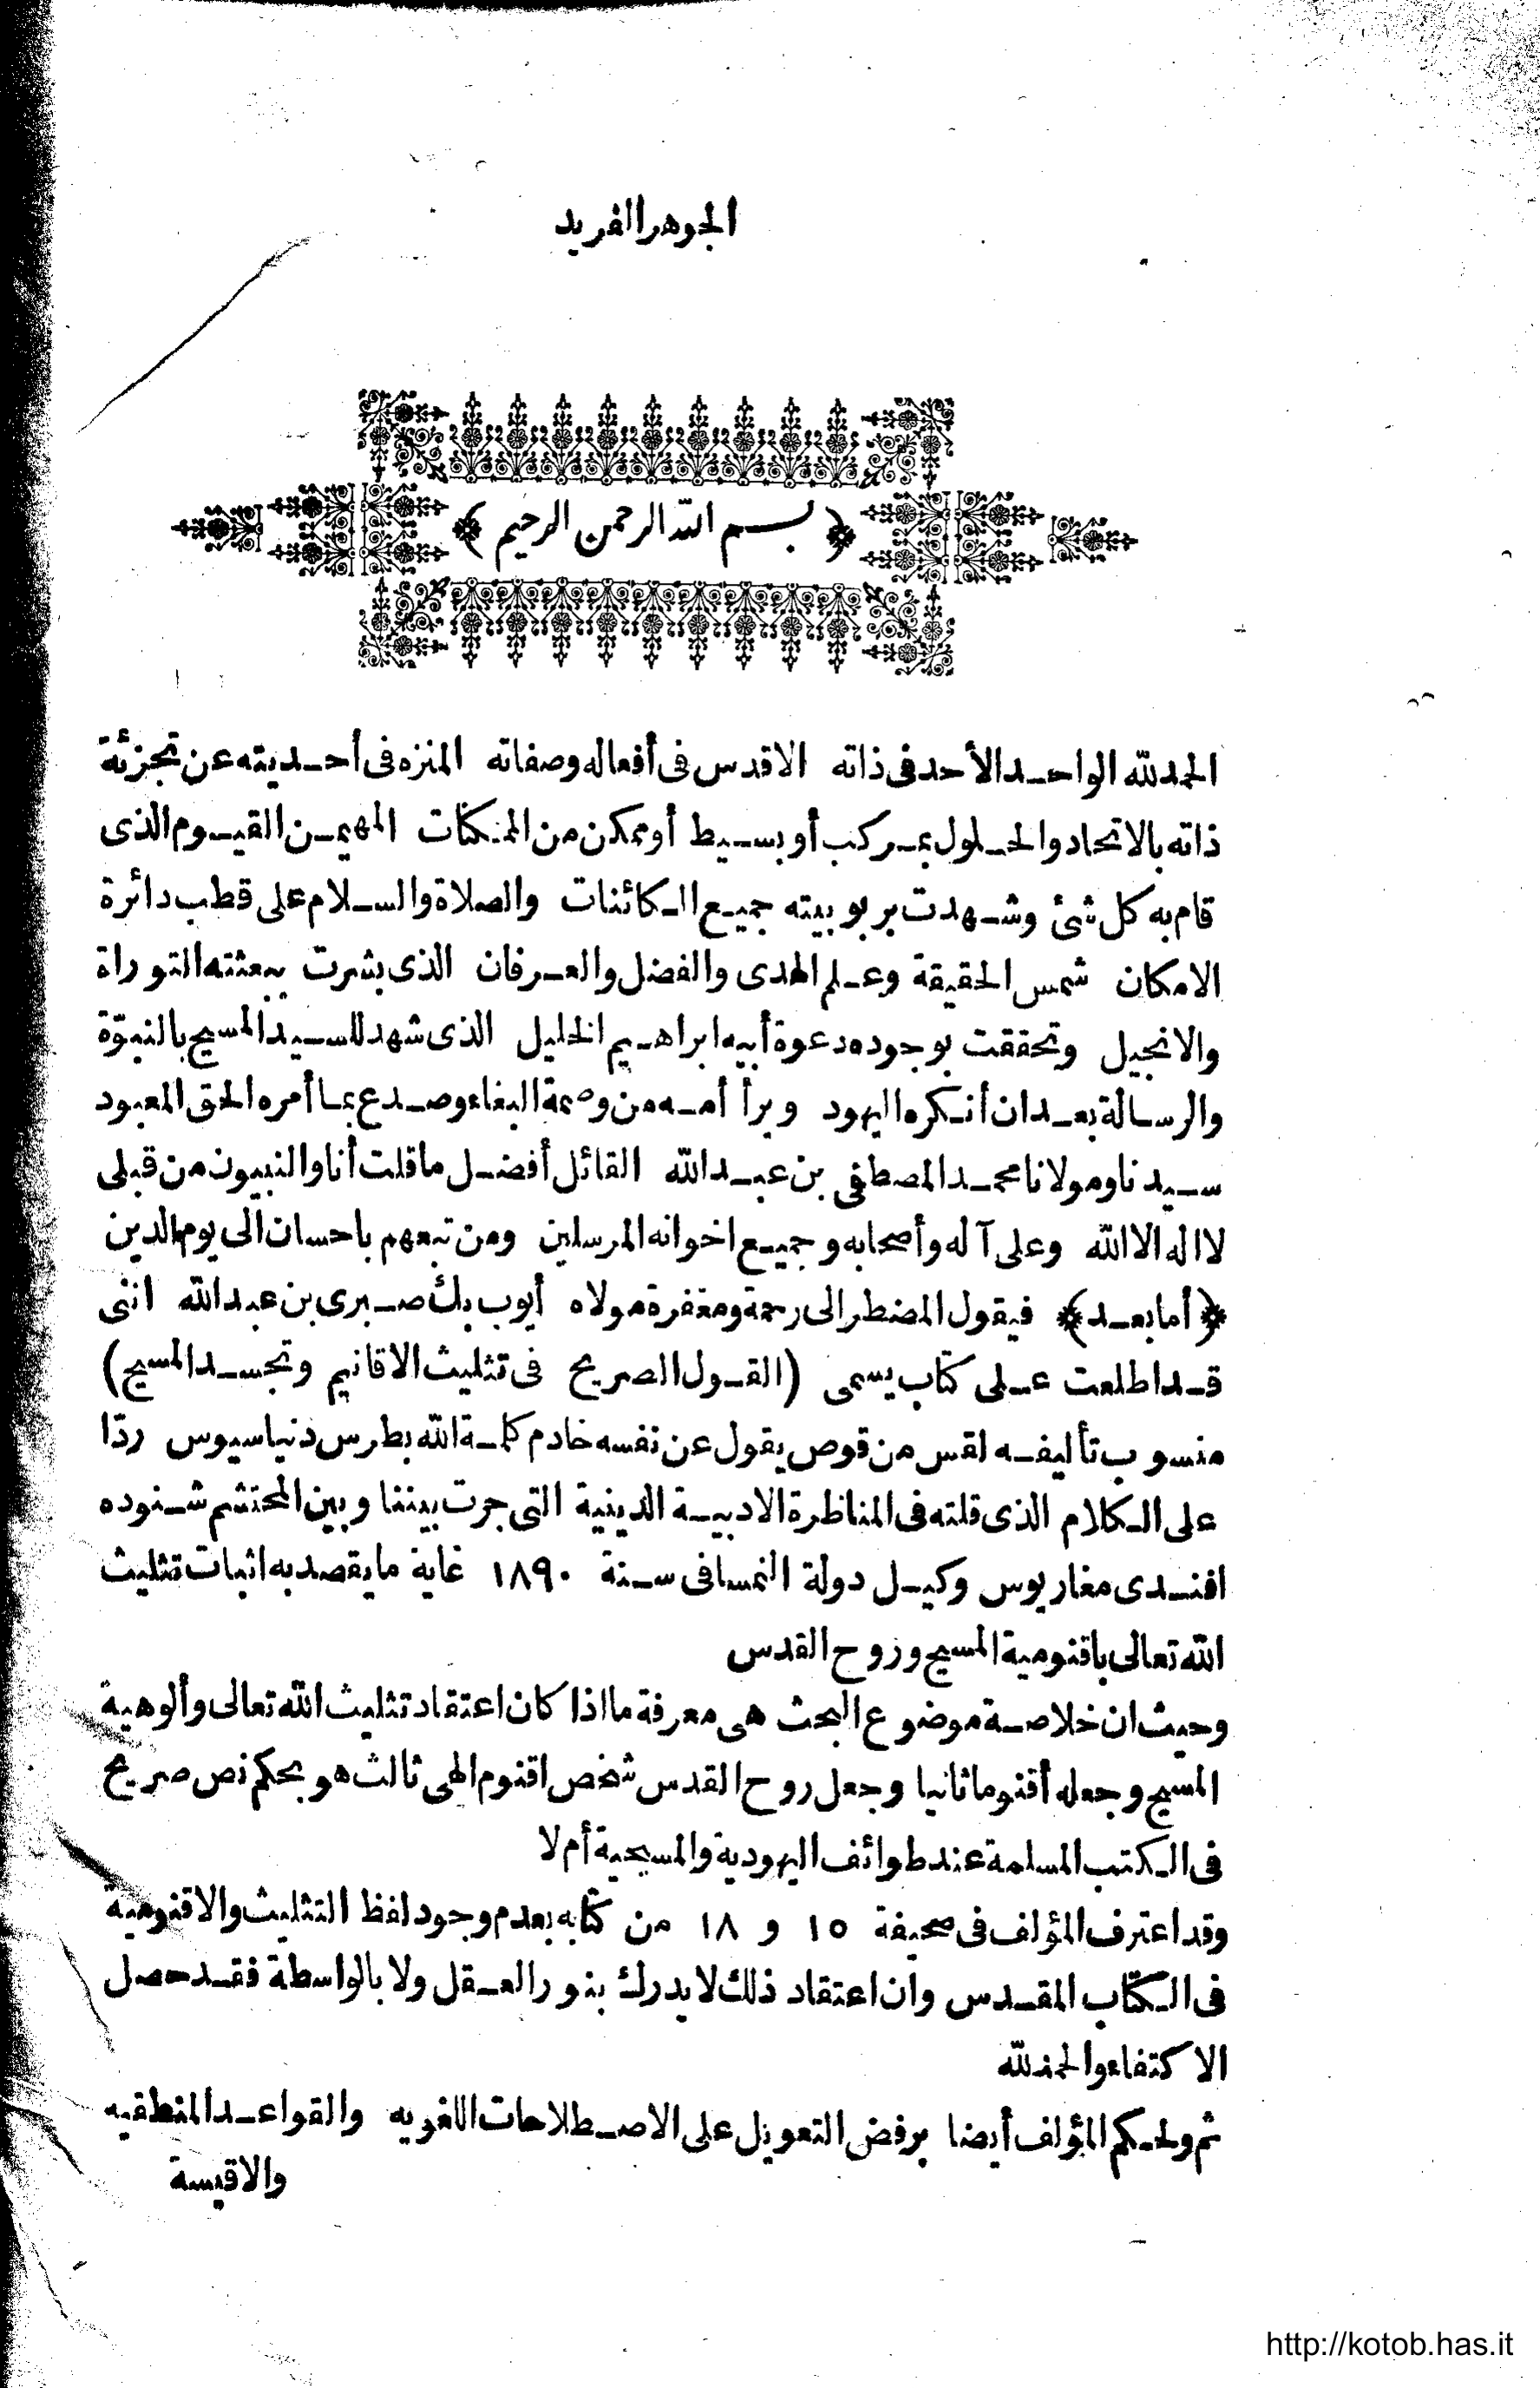 الجوهر الفريد
﴿ بسم الله الرحمن الرحيم ﴾
الحمد لله الواحد الأحد فى ذاته الاقدس فى أفعاله وصفاته المنزه فى أحديته عن تجزئة
ذاته بالاتحاد والحلول بمركب أو بسيط أو ممكن من الممكنات المهيمن القيوم الذى
قام به كل شئ وشهدت بربوبيته جميع الكائنات والصلاة والسلام على قطب دائرة
الامكان شمس الحقيقة وعلم الهدى والفضل والعرفان الذى بشرت ببعثته التوراة
والانجيل وتحققت بوجوده دعوة أبيه ابراهيم الخليل الذى شهد للسيد المسيح بالنبوّة
والرسالة بعد ان أنكره اليهود وبرأ أمه من وصمة البغاء وصدع بما أمره الحق المعبود
سيدنا ومولانا محمد المصطفى بن عبد الله القائل أفضل ما قلت أنا والنبيون من قبلى
لا اله الا الله وعلى آله وأصحابه وجميع اخوانه المرسلين ومن تبعهم باحسان الى يوم الدين
﴿أما بعد﴾ فيقول المضطر الى رحمة ومغفرة مولاه أيوب بك صبرى بن عبد الله اننى
قد اطلعت على كتاب يسمى (القول الصريح فى تثليث الاقانيم وتجسد المسيح)
منسوب تأليفه لقس من قوص يقول عن نفسه خادم كلمة الله بطرس دنياسيوس ردّا
على الكلام الذى قلته فى المناظرة الادبية الدينية التى جرت بيننا وبين المحتشم شنوده
افندى مغاريوس وكيل دولة النمسا فى سنة ١٨٩٠ غاية ما يقصد به اثبات تثليث
الله تعالى باقنومية المسيح وروح القدس
وحيث ان خلاصة موضوع البحث هى معرفة ما اذا كان اعتقاد تثليث الله تعالى وألوهية
المسيح وجعله أقنوما ثانيا وجعل روح القدس شخص اقنوم الهى ثالث هو بحكم نص صريح
فى الكتب المسلمة عند طوائف اليهودية والمسيحية أم لا
وقد اعترف المؤلف فى صحيفة ١٥ و ١٨ من كتابه بعدم وجود لفظ التثليث والاقنومية
فى الكتاب المقدس وان اعتقاد ذلك لا يدرك بنور العقل ولا بالواسطة فقد حصل
الاكتفاء والحمد لله
ثم ولحكم المؤلف أيضا برفض التعويل على الاصطلاحات اللغويه والقواعد المنطقيه
والاقيسة
http://kotob.has.it